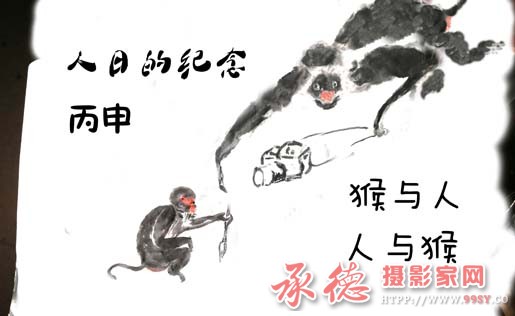 人日的纪念
丙申
猴与人
人与猴
承德摄影家网
HTPP://WWW.99SY.COM